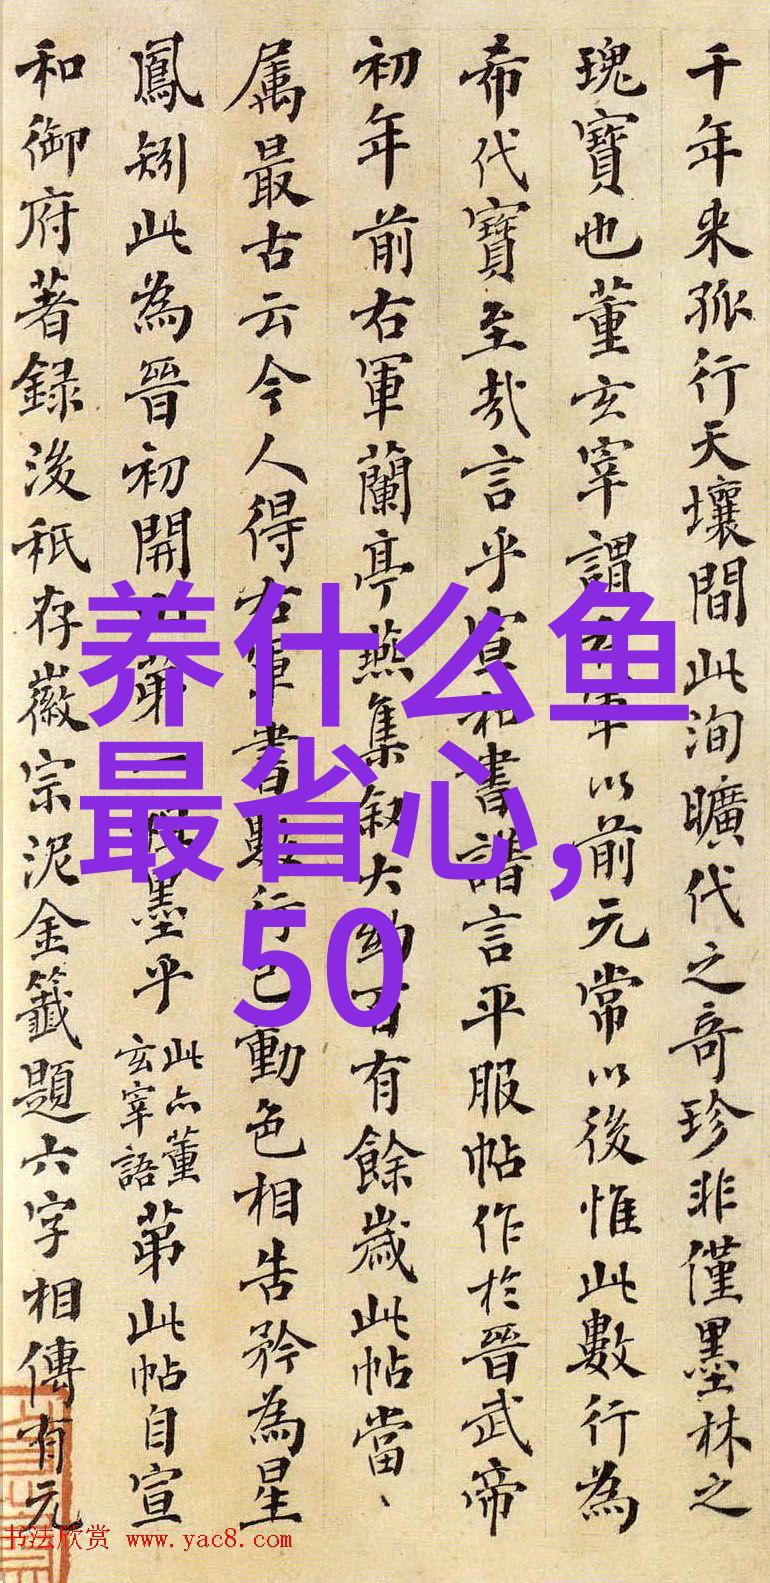 千年来孤行天壤間此洵曠代之奇珍非僅墨林之
瑰寶也董玄宰謂右軍以前元常以後惟此數行為
希代寶至哉言乎宣和書譜言平服帖作於晉武帝
初年前右軍蘭亭燕集敘大約百有餘歲此帖當、
属最古云今人得右軍書數行已動色相告矜為星
鳳矧此為晉初開山第一墨乎此亦董玄宰語第此帖自宣
和御府著録後秖存徽宗泥金籤題六字相傳有元
养什么鱼
最省心,
50
书法欣赏 www.yac8.com